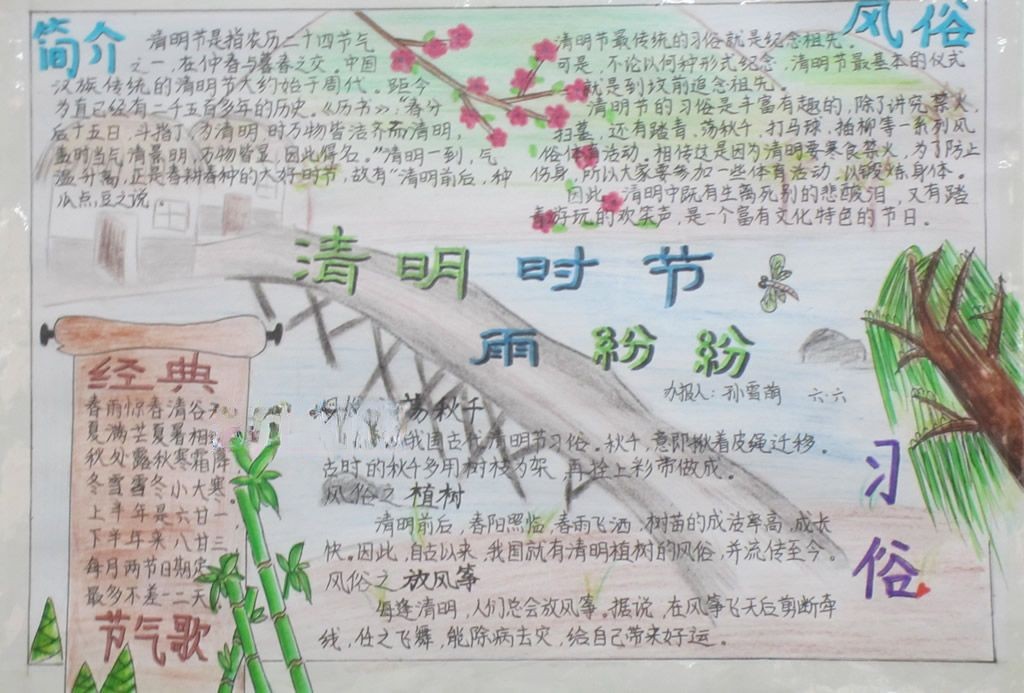 简介
清明节是指农历二十四节气
之一，在仲春与暮春之交。中国
汉族传统的清明节大约始于周代，距今
为直已经有二千五百多年的历史。《历书》："春分
后十五日，斗指丁，为清明，时万物皆洁齐而清明，
盖时当气清景明，万物皆显，因此得名。"清明一到，气
温升高，正是春耕春种的大好时节，故有"清明前后，种
瓜点豆之说。
风俗
清明节最传统的习俗就是纪念祖先。
可是，不论以何种形式纪念，清明节最基本的仪式
就是到坟前追念祖先。
清明节的习俗是丰富有趣的，除了讲究禁火、
扫墓，还有踏青、荡秋千、打马球、插柳等一系列风
俗体育活动。相传这是因为清明要寒食禁火，为了防止
伤身，所以大家要参加一些体育活动，以锻炼身体。
因此，清明中既有生离死别的悲酸泪，又有踏
青游玩的欢笑声，是一个富有文化特色的节日。
清明时节
雨纷纷
办报人：孙雪萌 六·六
经典
春雨惊春清谷天
夏满芒夏暑相
秋处露秋寒霜降
冬雪雪冬小大寒。
上半年是六廿一，
下半年来八廿三
每月两节日期定
最多不差一二天
节气歌
荡秋千
我国古代清明节习俗。秋千，意即揪着皮绳迁移。
古时的秋千多用树枝为架，再拴上彩带做成。
风俗之植树
清明前后，春阳照临，春雨飞洒，树苗的成活率高，成长
快。因此，自古以来，我国就有清明植树的风俗，并流传至今。
风俗之放风筝
每逢清明，人们总会放风筝。据说，在风筝飞天后剪断牵
线，任之飞舞，能除病去灾，给自己带来好运。
习俗